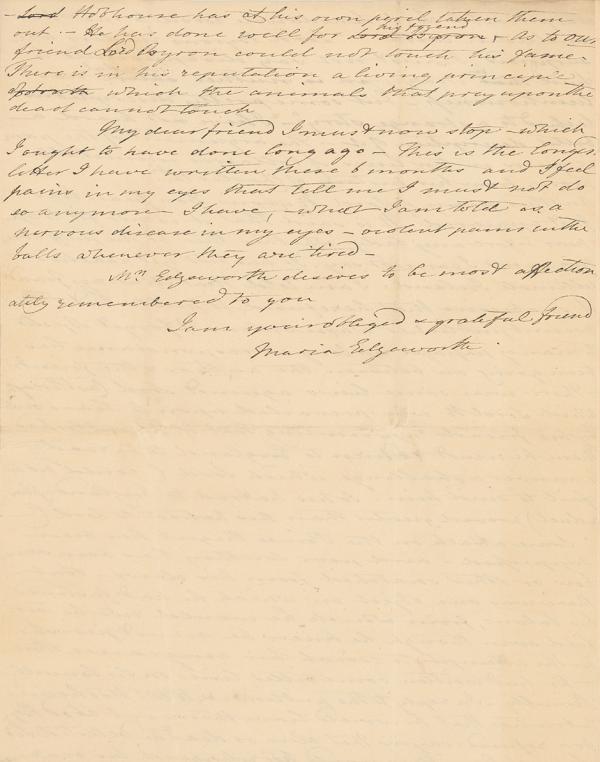 - Lord Hobhouse has at his own peril taken them
out. - He has done well for Lord Byron his friend & As to our
friend Lord Byron could not touch his fame
There is in his reputation a living principle
of truth which the animals that prey upon the
dead cannot touch
My dear friend I must now stop - which
I ought to have done long ago - This is the longest
letter I have written these 6 months and I feel
pains in my eyes that tell me I must not do
so any more I have, - what I am told is, a
nervous disease in my eyes - violent pains in the
balls whenever they are tired -
Mrs Edgeworth desires to be most affection
ately remembered to you
I am your obliged & grateful friend
Maria Edgeworth.